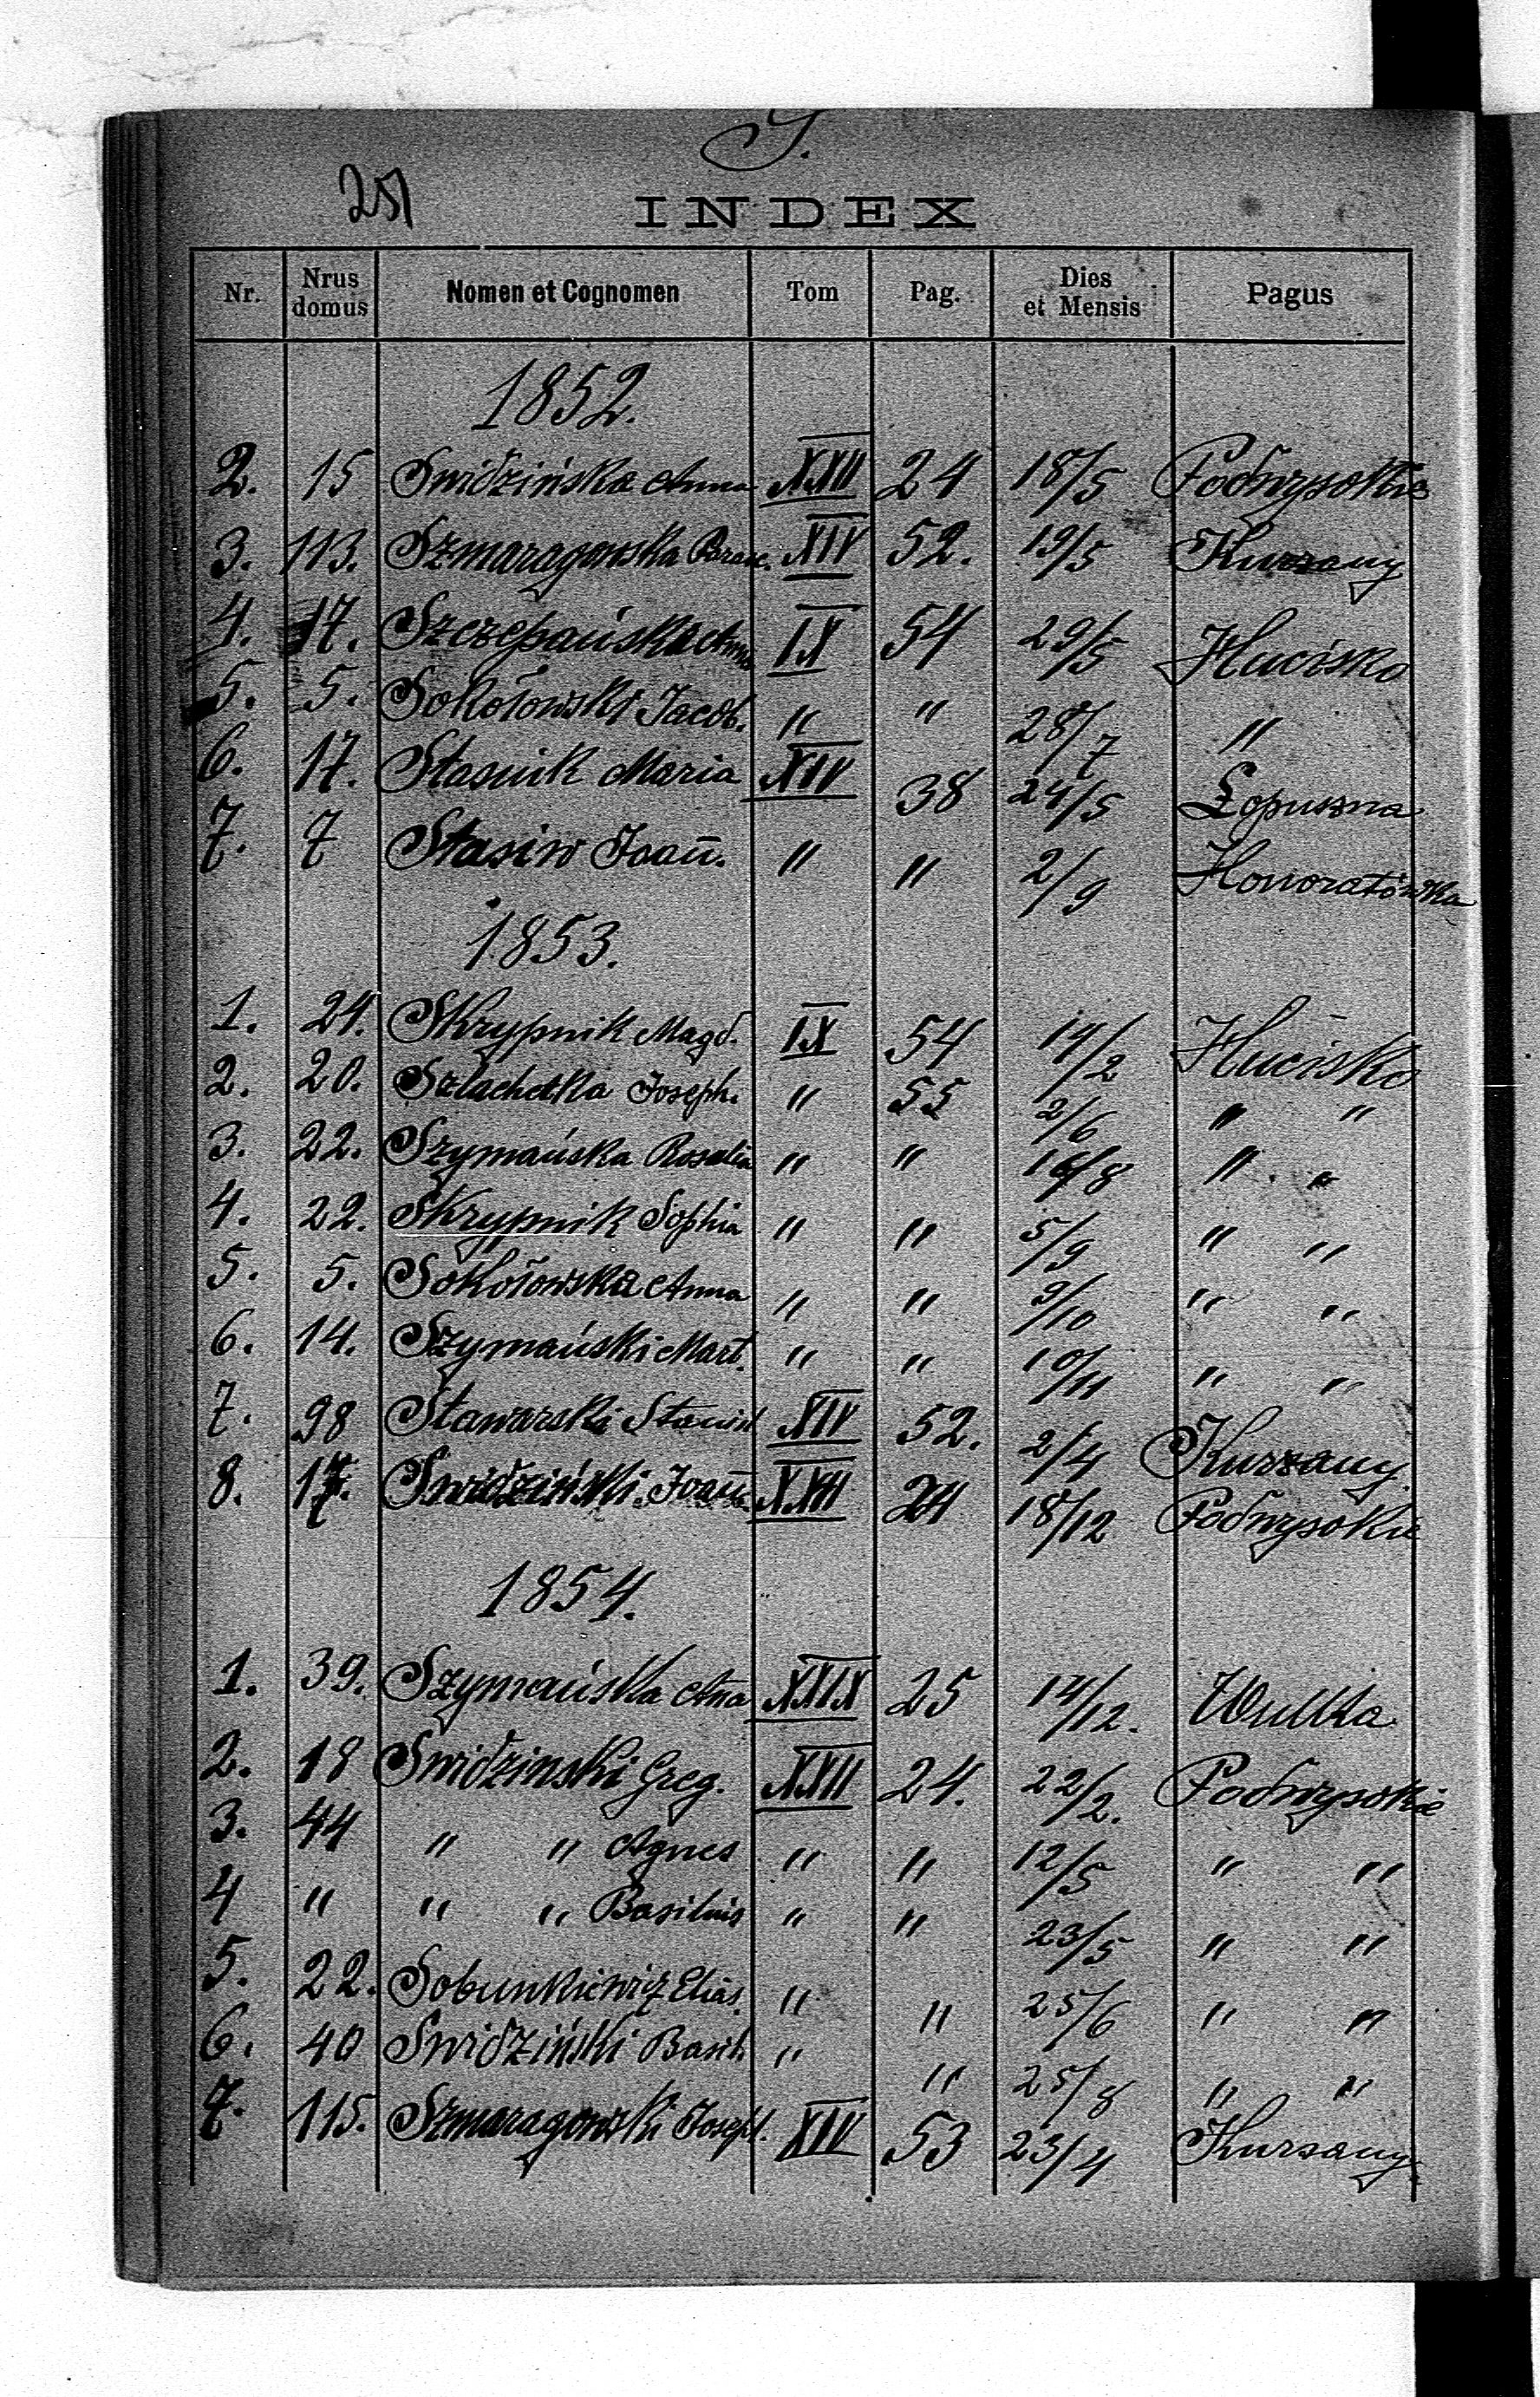 S.
251
INDEX
Nr. Nrus domus Nomen et Cognomen Tom Pag. Dies et Mensis Pagus
1852.
2. 15 Swidzińska Anna XXII 24 18/5 Podwysokie
3. 113. Szmaragowska Parasc. XIV 52. 19/5 Kurzany
4. 17. Szczepańska Anna IX 54 29/5 Hucisko
5. 5. Sokołowski Jacob. " " 28/7 "
6. 17. Stasiuk Maria XIV 38 24/5 Łopuszna
7. 7 Stasiw Joan̄. " " 2/9 Honoratówka
1853.
1. 24. Skrypnik Magd. IX 54 14/2 Hucisko
2. 20. Szlachetka Joseph. " 55 2/6 " "
3. 22. Szymańska Rosalia " " 16/8 " "
4. 22. Skrypnik Sophia " " 5/9 " "
5. 5. Sokołowska Anna " " 9/10 " "
6. 14. Szymański Mart. " " 10/11 " "
7. 98 Stawarski Stanisl XIV 52. 2/4 Kurzany
8. 17. Swidziński Joan̄. XXII 24 18/12 Podwysokie
1854.
1. 39. Szymańska An̄a XXIX 25 14/12. Wulka
2. 18 Swidzinski Greg. XXII 24. 22/2. Podwysokie
3. 44 " " Agnes " " 12/5 " "
4 " " " Basilius " " 23/5 " "
5. 22. Sobunkiewicz Elias. " " 25/6 " "
6. 40 Swidziński Basil. " " 25/8 " "
7. 115. Szmaragowski Joseph. XIV 53 23/4 Kurzany